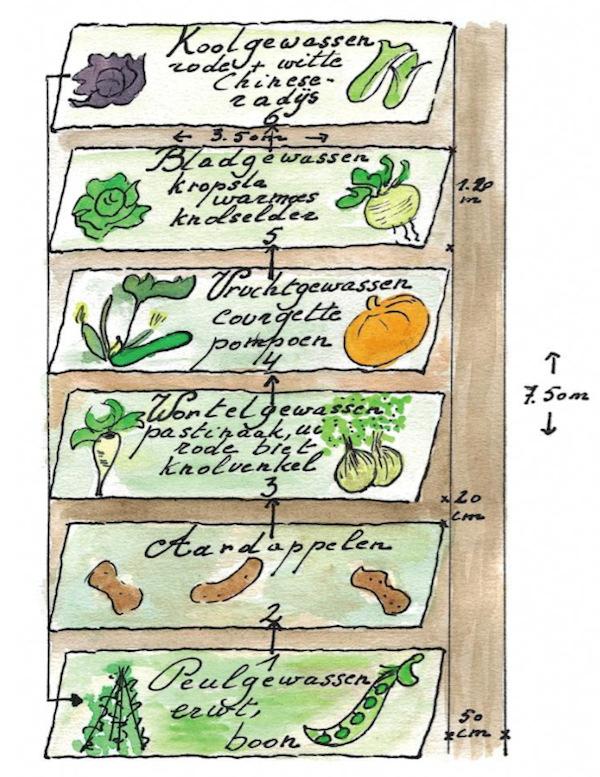 Koolgewassen
rode + witte
Chinese-
radijs
6
3.50m
Bladgewassen
kropsla
warmoes
knolselder
5
1.20
m
Vruchtgewassen
courgette
pompoen
4
7.50m
Wortelgewassen
pastinaak, ui
rode biet
knolvenkel
3
20
cm
Aardappelen
2
1
Peulgewassen
erwt,
boon
50
cm